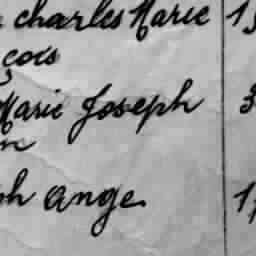 charles Marie
çois
Marie Joseph
ph ange.